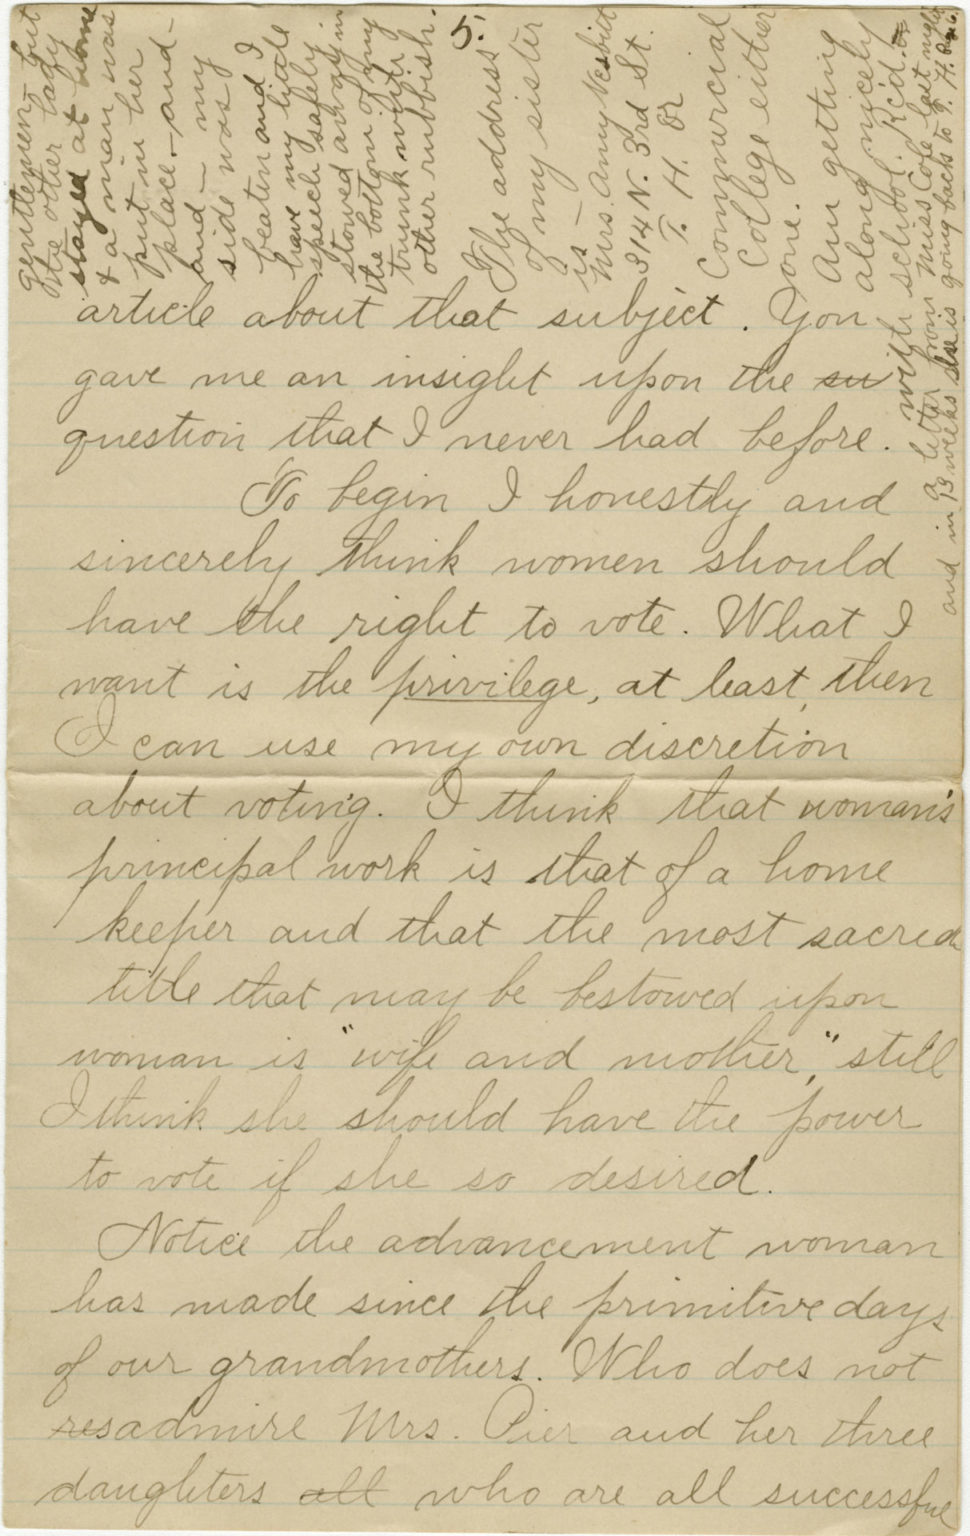 5.
article about that subject. You
gave me an insight upon the su
question that I never had before.
To begin I honestly and
sincerely think women should
have the right to vote. What I
want is the privilege, at least, then
I can use my own discretion
about voting. I think that woman's
principal work is that of a home
keeper and that the most sacred
title that may be bestowed upon
woman is "wife and mother," still
I think she should have the power
to vote if she so desired.
Notice the advancement woman
has made since the primitive days
of our grandmothers. Who does not
res admire Mrs. Pier and her three
daughters all who are all successful
gentlemen, but
the other lady
stayed at home
& a man was
put in her
place.—and—
and— my
side was
beaten and I
have my little
speech safely
stowed away in
the bottom of my
trunk with
other rubbish.
The address
of my sister
is—
Mrs. Amy Nesbit
314 N. 3rd St.
T. H. or
Commurcial
College either
one.
Am getting
along nicely
with school. Rc'd.
a letter from Miss Cole last night
and in 13 weeks she is going back to T. H.